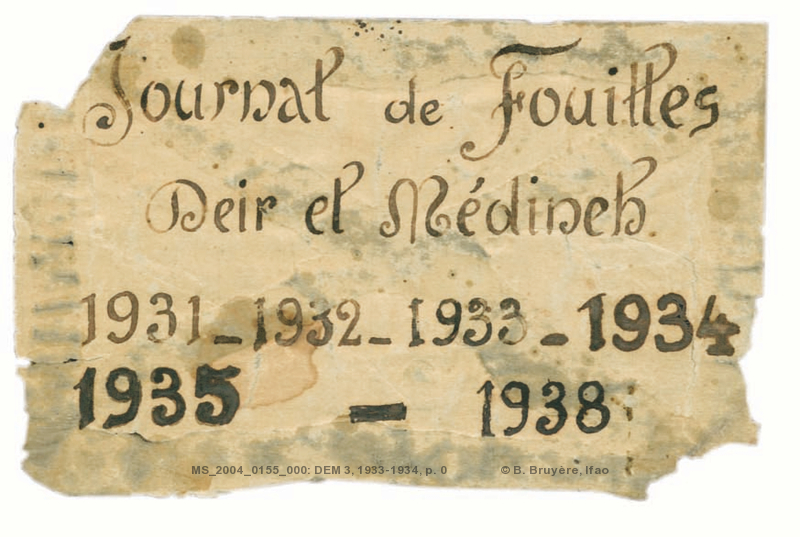 Journal de Fouilles
Deir el Médineh
1931_1932_1933_1934
1935 — 1938
MS_2004_0155_000; DEM 3, 1933-1934, p. 0 © B. Bruyère, Ifao